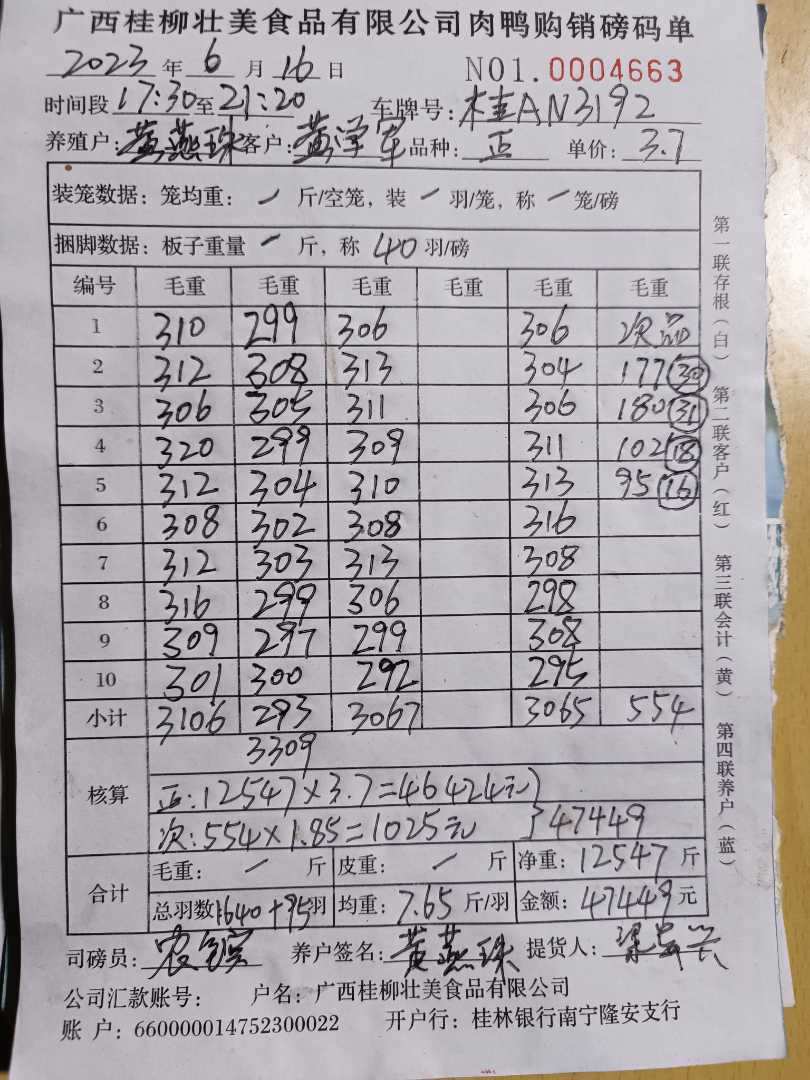 广西桂柳壮美食品有限公司肉鸭购销磅码单
2023年6月16日 NO1.0004663
时间段17:30至21:20 车牌号：桂AN3192
养殖户：黄燕珠 客户：黄泽军 品种：正 单价：3.7
装笼数据：笼均重：/斤/空笼，装/羽/笼，称/笼/磅
捆脚数据：板子重量/斤，称40羽/磅
编号 毛重 毛重 毛重 毛重 毛重 毛重
1 310 299 306 306 次品
2 312 308 313 304 177 30
3 306 305 311 306 180 31
4 320 299 309 311 102 18
5 312 304 310 313 95 16
6 308 302 308 316
7 312 303 313 308
8 316 299 306 298
9 309 297 299 308
10 301 300 292 295
小计 3106 293 3067 3065 554
3309
核算 正：12547×3.7=46424元
次：554×1.85=1025元 }47449
合计 毛重：/斤 皮重：/斤 净重：12547斤
总羽数1640+95羽 均重：7.65斤/羽 金额：47449元
司磅员： 养户签名：黄燕珠 提货人：
公司汇款账号： 户名：广西桂柳壮美食品有限公司
账户：660000014752300022 开户行：桂林银行南宁隆安支行
第一联存根（白） 第二联客户（红） 第三联会计（黄） 第四联养户（蓝）